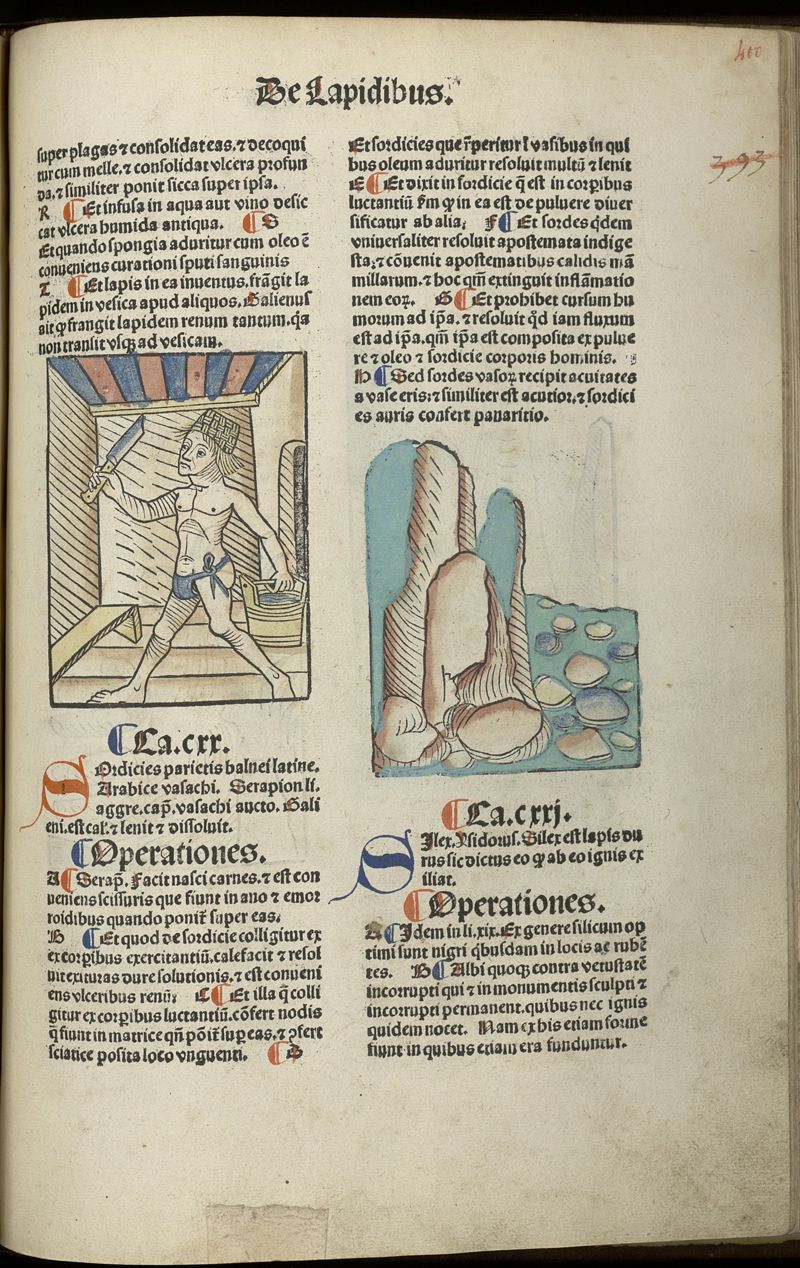 400
393
De Lapidibus.
super plagas ⁊ consolidat eas, ⁊ decoqui
tur cum melle, ⁊ consolidat vlcera profun
da, ⁊ similiter ponit sicca super ipsa.
R ¶ Et infusa in aqua aut vino desic
cat vlcera humida antiqua. ¶ S
Et quando spongia aduritur cum oleo ē
conueniens curationi sputi sanguinis
T ¶ Et lapis in ea inuentus. frāgit la
pidem in vesica apud aliquos. Galienus
ait ꝙ frangit lapidem renum tantum. q̃a
non transit vsqꝫ ad vesicam.
¶ Ca. cxx.
Sordicies parietis balnei latine.
Arabice vasachi. Serapion li.
aggre. cap̃. vasachi aucto. Gali
eni. est cal. ⁊ lenit ⁊ dissoluit.
¶ Operationes.
A ¶ Serap̃. Facit nasci carnes. ⁊ est con
ueniens scissuris que fiunt in ano ⁊ emor
roidibus quando ponit̃ super eas.
B ¶ Et quod de sordicie colligitur ex
ex corp̃ibus exercitantiū. calefacit ⁊ resol
uit exituras dure solutionis. ⁊ est conueni
ens vlceribus renū; C ¶ Et illa q̃ colli
gitur ex corp̃ibus luctantiū. cōfert nodis
q̃ fiunt in matrice qñ pōit̃ sup̃ eas. ⁊ ꝯfert
sciatice posita loco vnguenti. ¶ D
Et sordicies que r̃peritur ĩ vasibus in qui
bus oleum aduritur resoluit multū ⁊ lenit
E ¶ Et dixit in sordicie q̃ est in corp̃ibus
luctantiū s̃m ꝙ in ea est de puluere diuer
sificatur ab alia; F ¶ Et sordes q̃dem
vniuersaliter resoluit apostemata indige
sta; ⁊ cōuenit apostematibus calidis mā
millarum. ⁊ hoc qm̃ extinguit inflāmatio
nem eoꝝ. G ¶ Et prohibet cursum hu
morum ad ip̃a. ⁊ resoluit q̃d iam fluxum
est ad ip̃a. qm̃ ip̃a est composita ex pulue
re ⁊ oleo ⁊ sordicie corporis hominis.
H ¶ Sed sordes vasoꝝ recipit acuitates
a vase eris; ⁊ similiter est acutior, ⁊ sordici
es auris confert panaritio.
¶ Ca. cxxj.
Silex. Ysidorus. Silex est lapis du
rus sic dictus eo ꝙ ab eo ignis ex
iliat.
¶ Operationes.
A ¶ Idem in li. xix. Ex genere silicum op
timi sunt nigri q̃busdam in locis ac rubē
tes. B ¶ Albi quoqꝫ contra vetustatē
incorrupti qui ⁊ in monumentis sculpti ⁊
incorrupti permanent. quibus nec ignis
quidem nocet. Nam ex his etiam forme
fiunt in quibus etiam era funduntur.